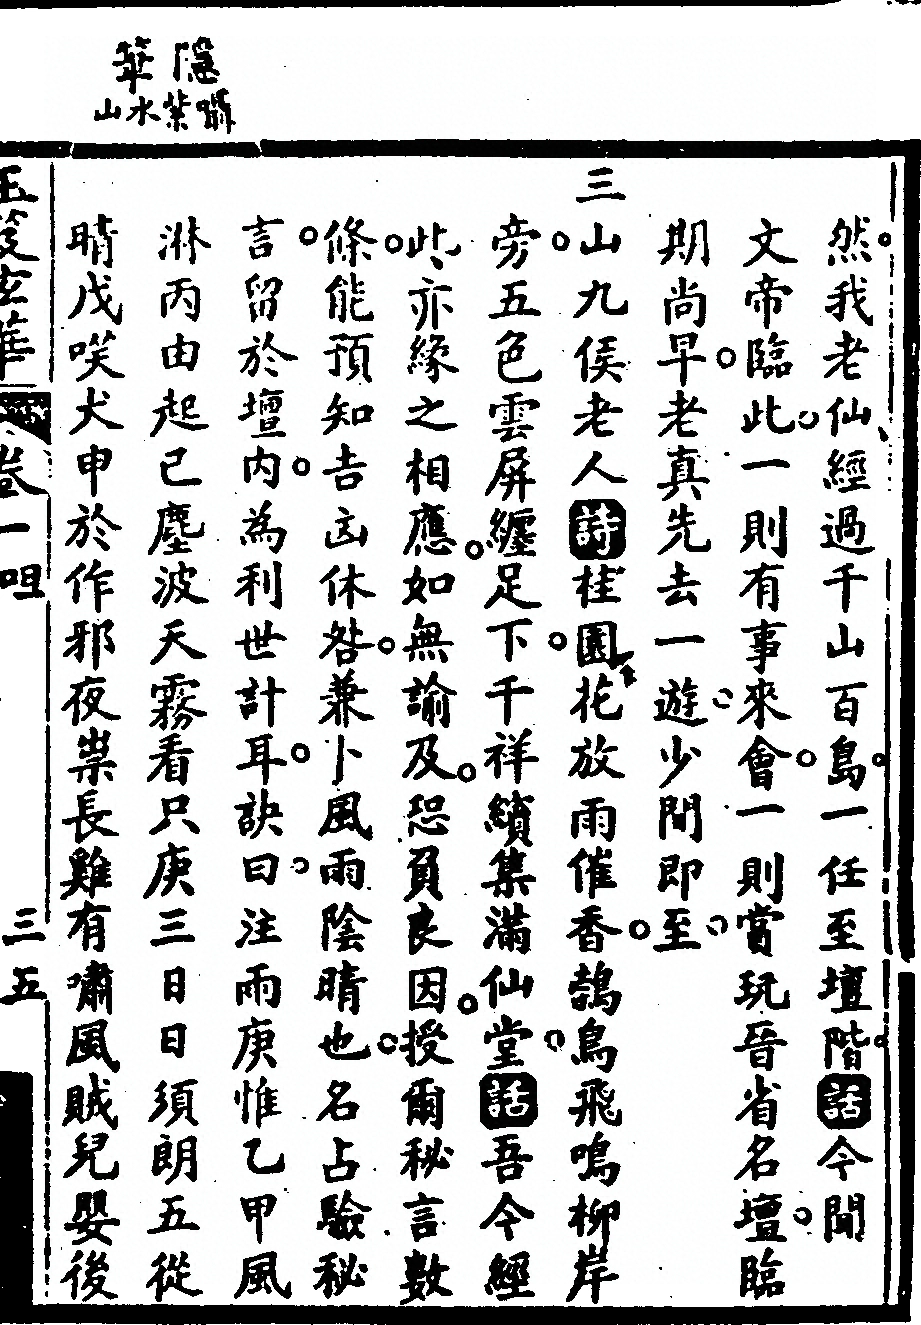 隱華
囁紫水山
然我老仙經過千山百島一任至壇階話今聞
文帝臨此一則有事來會一則當玩晉省名壇臨
期尚早老真先去一遊少間即至
三山九侯老人詩桂園花放雨催香鵠鳥飛鳴柳岸
旁五色雲屏纏足下千祥續集滿仙堂話吾今經
此亦緣之相應如無諭及恐負良因授爾秘言數
條能預知吉凶休咎兼卜風雨陰晴也名占驗秘
言留於壇內為利世計耳訣曰注雨庚惟乙甲風
淋丙由起己塵波天霧看只庚三日日須朗五從
晴戊哭犬申於作邪夜祟長難有嘯風賊兒嬰後
玉笈玄華
卷一 呾
三五